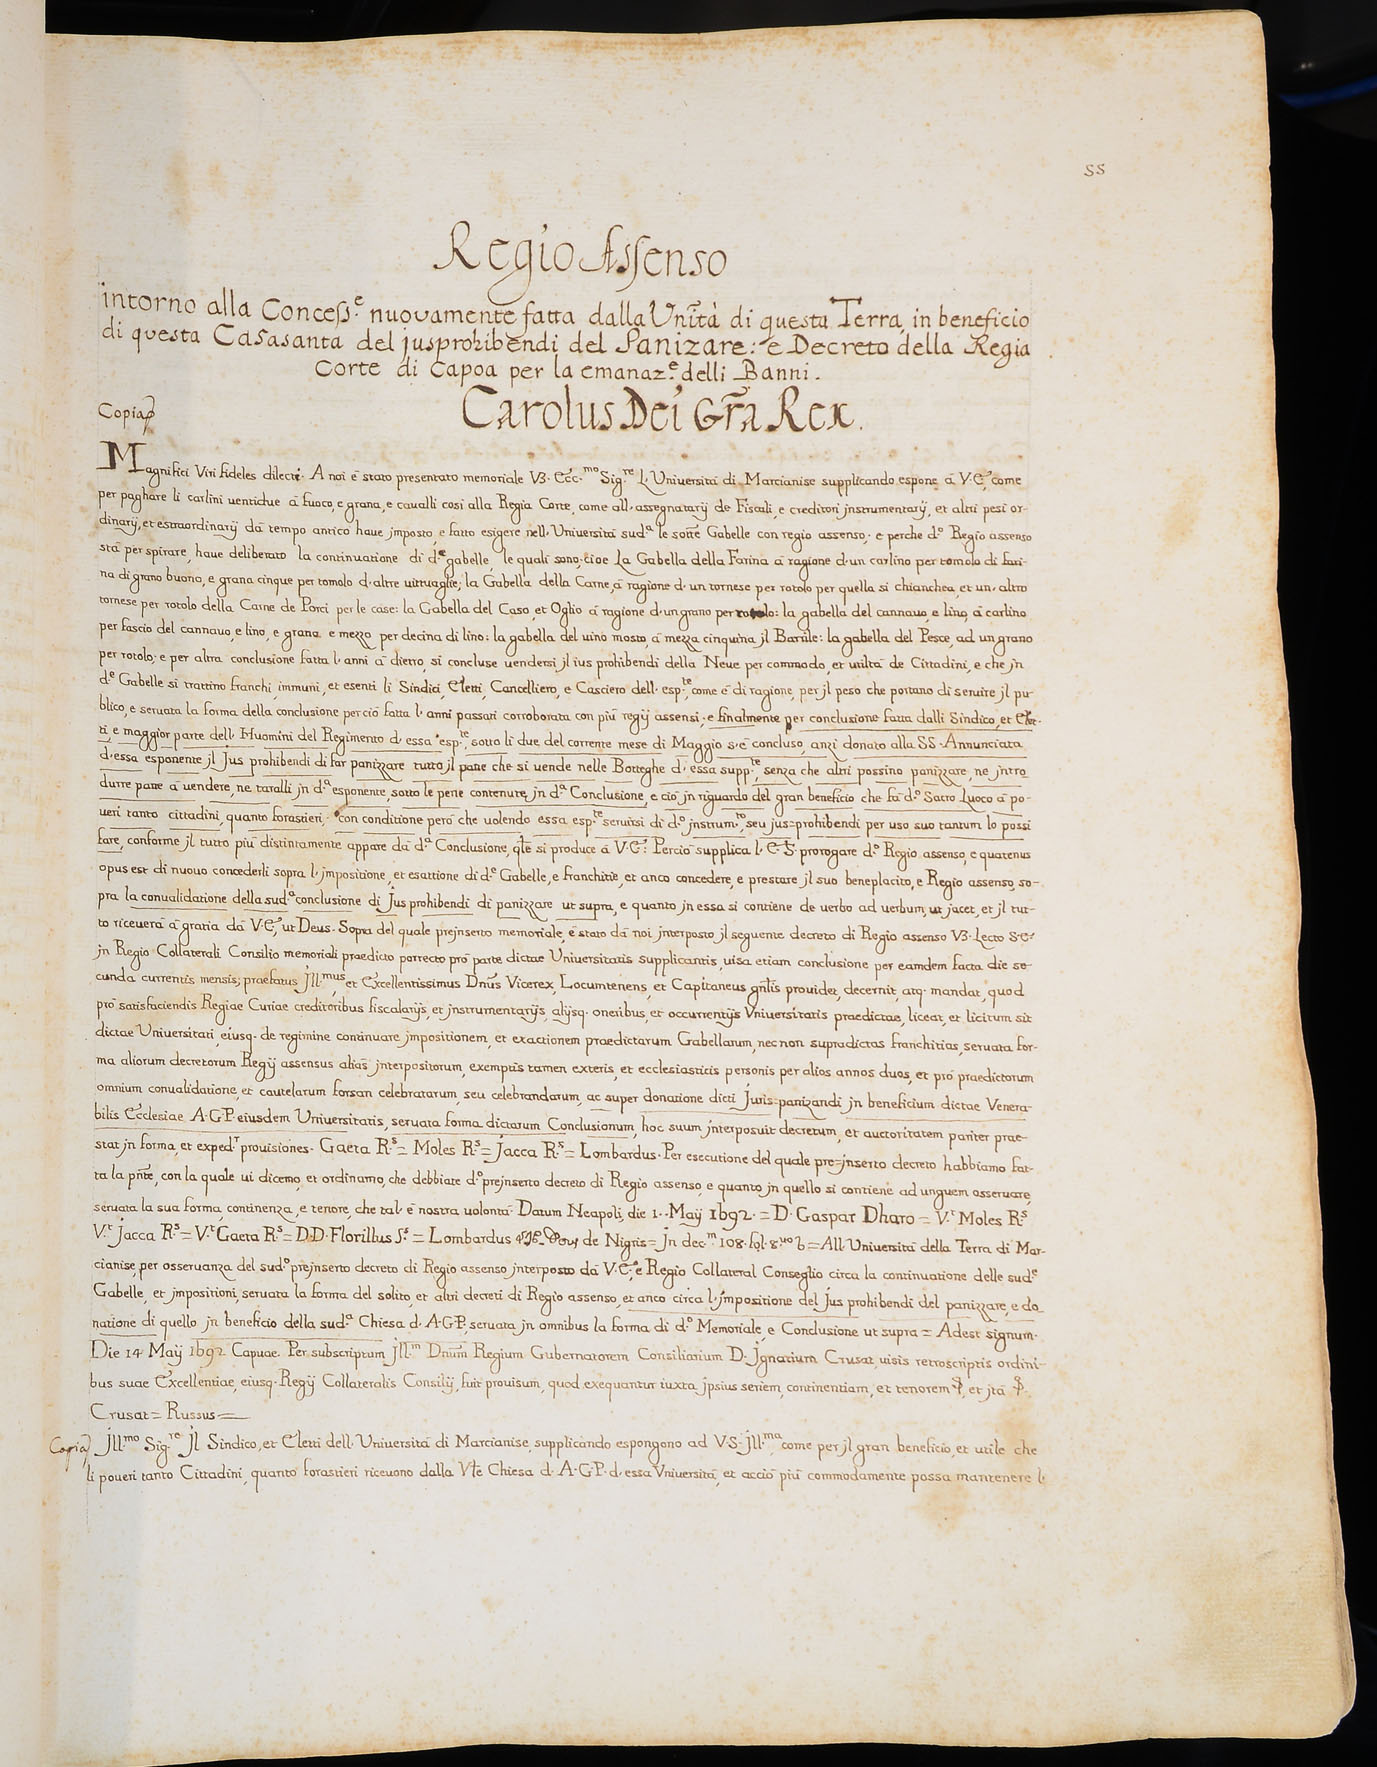 55
Regio Assenso
intorno alla Concess.e nuovamente fatta dalla Unità di questa Terra, in beneficio
di questa Casasanta del jusprohibendi del Panizare: e Decreto della Regia
Corte di Capoa per la emanaz.e delli Banni.
Copia
Carolus Dei Grã Rex.
Magnifici Viri fideles dilecti. A noi è stato presentato memoriale V3. Ecc.mo Sig.re L'Università di Marcianise supplicando espone à V.E., come
per paghare li carlini ventidue à fuoco, e grana, e cavalli così alla Regia Corte, come all'assegnatarij de Fiscali, e creditori jnstrumentarij, et altri pesi or-
dinarij, et estraordinarij dà tempo antico have jmposto, e fatto esigere nell'Università sud.a le sottẽ Gabelle con regio assenso, e perche d.o Regio assenso
stà per spirare, have deliberato la continuatione di d.e gabelle, le quali sono, cioe La Gabella della Farina à ragione d'un carlino per tomolo di fari-
na di grano buono, e grana cinque per tomolo d'altre vittuaglie; la Gabella della Carne, à ragione d'un tornese per rotolo per quella si chianchea, et un'altro
tornese per rotolo della Carne de Porci per le case: la Gabella del Caso, et Oglio à ragione d'un grano per rotolo: la gabella del cannavo, e lino, à carlino
per fascio del cannavo, e lino, e grana e mezzo per decina di lino: la gabella del vino mosto, à mezza cinquina jl Barrile: la gabella del Pesce, ad un grano
per rotolo; e per altra conclusione fatta l'anni à dietro, si concluse vendersi jl ius prohibendi della Neve per commodo, et utiltà de Cittadini, e che jn
d.e Gabelle si trattino franchi, immuni, et esenti li Sindici, Eletti, Cancelliero, e Casciero dell'esp.te come è di ragione, per jl peso che portano di servire jl pu-
blico, e servata la forma della conclusione perciò fatta l'anni passati corroborata con più regij assensi; e finalmente per conclusione fatta dalli Sindico, et Elet-
ti, e maggior parte dell'Huomini del Regimento d'essa esp.te, sotto li due del corrente mese di Maggio s'è concluso, anzi donato alla SS. Annunciata
d'essa esponente jl Jus prohibendi di far panizzare tutto jl pane che si vende nelle Botteghe d'essa supp.te, senza che altri possino panizzare, ne jntro
durre pane à vendere, ne taralli jn d.a esponente, sotto le pene contenute jn d.a Conclusione, e ciò jn riguardo del gran beneficio che fà d.o Sacro Luoco à po-
veri tanto cittadini, quanto forastieri, con conditione però che volendo essa esp.te servirsi di d.o jnstrum.to, seu jus=prohibendi per uso suo tantum lo possi
fare, conforme jl tutto più distintamente appare dà d.a Conclusione, qle si produce à V.E.: Perciò supplica l'E.S. prorogare d.o Regio assenso, e quatenus
opus est di nuovo concederli sopra l'jmpositione, et esattione di d.e Gabelle, e franchitie, et anco concedere, e prestare jl suo beneplacito, e Regio assenso, so-
pra la convalidatione della sud.a conclusione di Jus prohibendi di panizzare ut supra, e quanto jn essa si contiene de verbo ad verbum, ut jacet, et jl tut-
to riceverà à gratia dà V.E., ut Deus. Sopra del quale prejnserto memoriale, è stato dà noi jnterposto jl seguente decreto di Regio assenso V3. Lecto S.E.
jn Regio Collaterali Consilio memoriali praedicto porrecto prò parte dictae Universitatis supplicantis, visa etiam conclusione per eamdem facta die se-
cunda currentis mensis; praefatus Jll.mus et Excellentissimus Dnus Vicerex, Locumtenens, et Capitaneus gnlis providet, decernit, atq. mandat, quod
prò satisfaciendis Regiae Curiae creditoribus fiscalarijs, et jnstrumentarijs, alijsq. oneribus, et occurrentijs Universitatis praedictae, liceat, et licitum sit
dictae Universitati, eiusq. de regimine continuare jmpositionem, et exactionem praedictarum Gabellarum, nec non supradictas franchitias, servata for-
ma aliorum decretorum Regij assensus aliàs jnterpositorum, exemptis tamen exteris, et ecclesiasticis personis per alios annos duos, et prò praedictorum
omnium convalidatione, et cautelarum forsan celebratarum, seu celebrandarum, ac super donatione dicti Juris=panizandi jn beneficium dictae Venera-
bilis Ecclesiae A.G.P. eiusdem Universitatis, servata forma dictarum Conclusionum, hoc suum jnterposuit decretum, et auctoritatem pariter prae-
stat jn forma, et exped.r provisiones. Gaeta R.s= Moles R.s= Jacca R.s= Lombardus. Per esecutione del quale pre=jnserto decreto habbiamo fat-
ta la pnte, con la quale vi dicemo, et ordinamo, che debbiate d.o prejnserto decreto di Regio assenso, e quanto jn quello si contiene ad unguem osservare,
servata la sua forma, continenza, e tenore, che tal è nostra volontà. Datum Neapoli, die 1.. Maij 1692.= D. Gaspar Dharo= V.t Moles R.s
V.t Jacca R.s= V.t Gaeta R.s= D.D. Florillus S.s = Lombardus de Nigris= Jn dec.m 108. fol. 8.vo b= All'Università della Terra di Mar-
cianise, per osservanza del sud.o prejnserto decreto di Regio assenso jnterposto dà V.E., e Regio Collateral Conseglio circa la continuatione delle sud.e
Gabelle, et jmpositioni, servata la forma del solito, et altri decreti di Regio assenso, et anco circa l'jmpositione del Jus prohibendi del panizzare, e do
natione di quello jn beneficio della sud.a Chiesa d'A.G.P., servata jn omnibus la forma di d.o Memoriale, e Conclusione ut supra= Adest signum.
Die 14 Maij 1692 Capuae. Per subscriptum Jll.m Dnum Regium Gubernatorem Consiliarium D. Jgnatium Crusat, visis retroscriptis ordini-
bus suae Excellentiae, eiusq. Regij Collateralis Consilij, fuit provisum, quod exequantur iuxta jpsius seriem, continentiam, et tenorem, et jtà
Crusat= Russus=
Copia Jll.mo Sig.re Jl Sindico, et Eletti dell'Università di Marcianise, supplicando espongono ad V.S. Jll.ma come per jl gran beneficio, et utile che
li poveri tanto Cittadini, quanto forastieri ricevono dalla Vle Chiesa d'A.G.P. d'essa Università, et acciò più commodamente possa mantenere l'